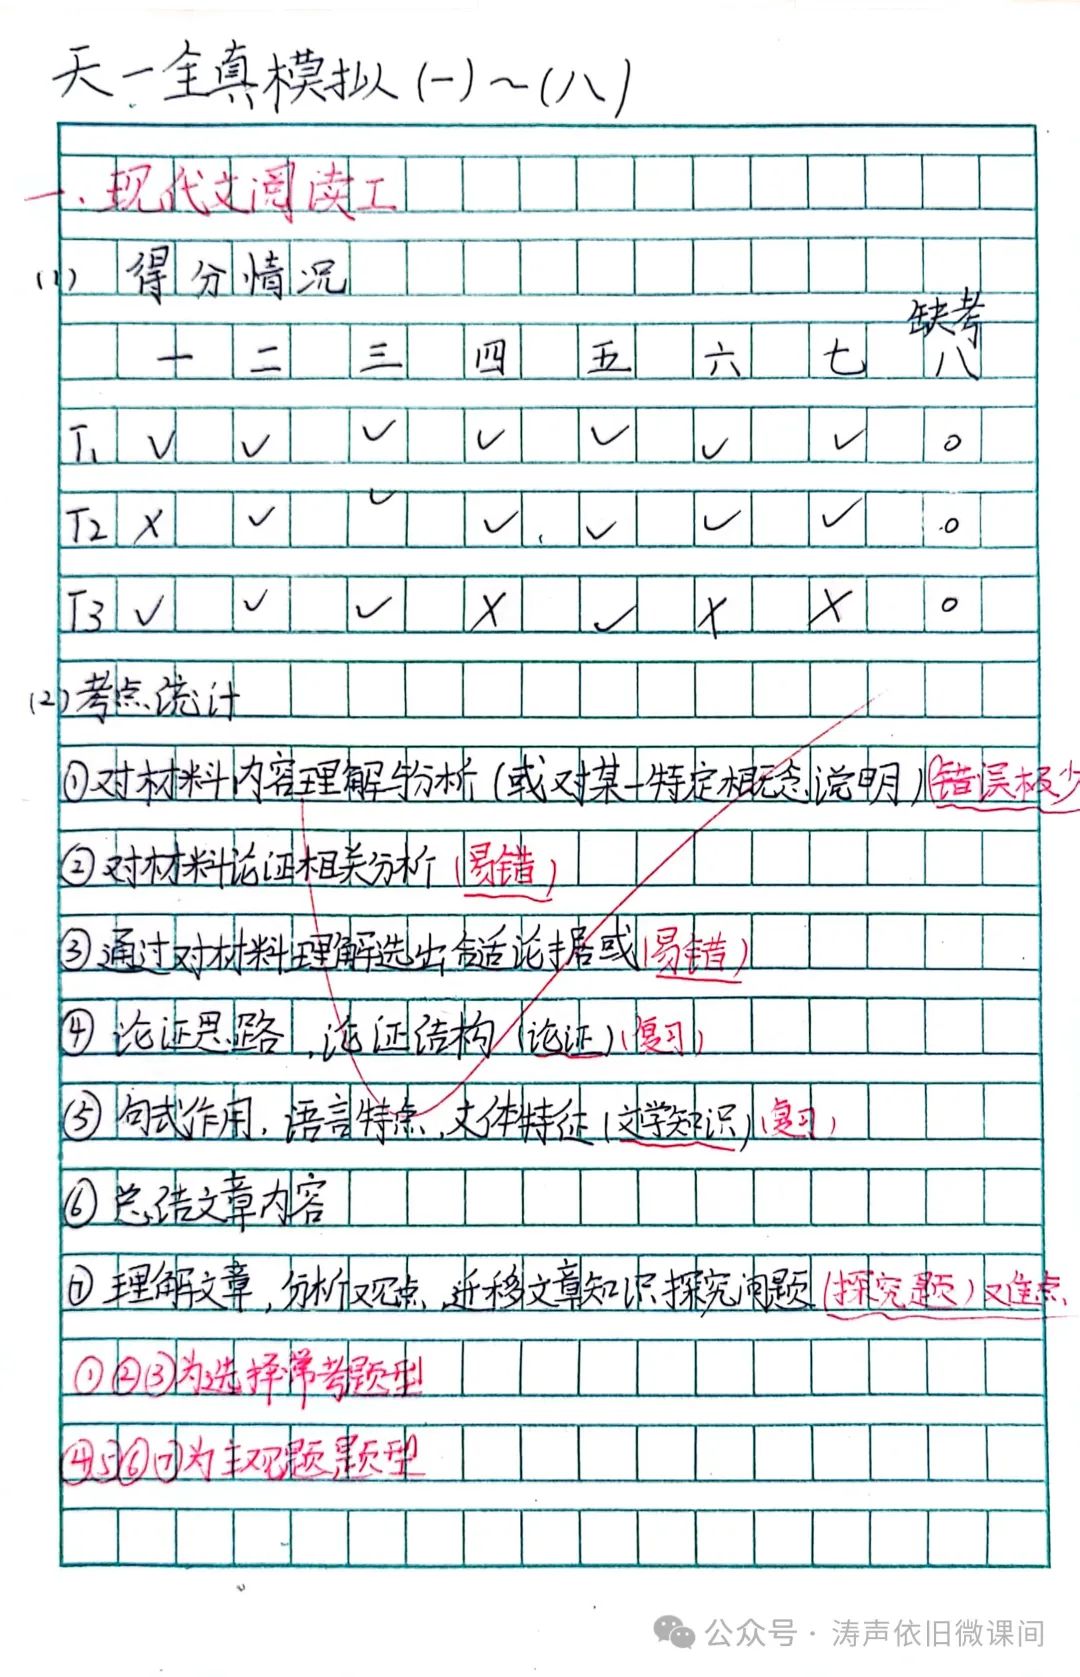 天一全真模拟(一)~(八)
一、现代文阅读工
(1) 得分情况
缺考
一 二 三 四 五 六 七 八
T1 ✓ ✓ ✓ ✓ ✓ ✓ ✓ 0
T2 × ✓ ✓ ✓ ✓ ✓ ✓ 0
T3 ✓ ✓ ✓ × ✓ × × 0
(2)考点统计
①对材料内容理解与分析(或对某一特定概念说明)(错误极少
②对材料论证相关分析(易错)
③通过对材料理解选出合适论据或(易错)
④论证思路,论证结构(论证)(复习)
⑤句式作用,语言特点,文体特征(文学知识)(复习)
⑥总结文章内容
⑦理解文章,分析观点,迁移文章知识探究问题(探究题)难点
①②③为选择常考题型
④⑤⑥⑦为主观题题型
公众号·涛声依旧微课间